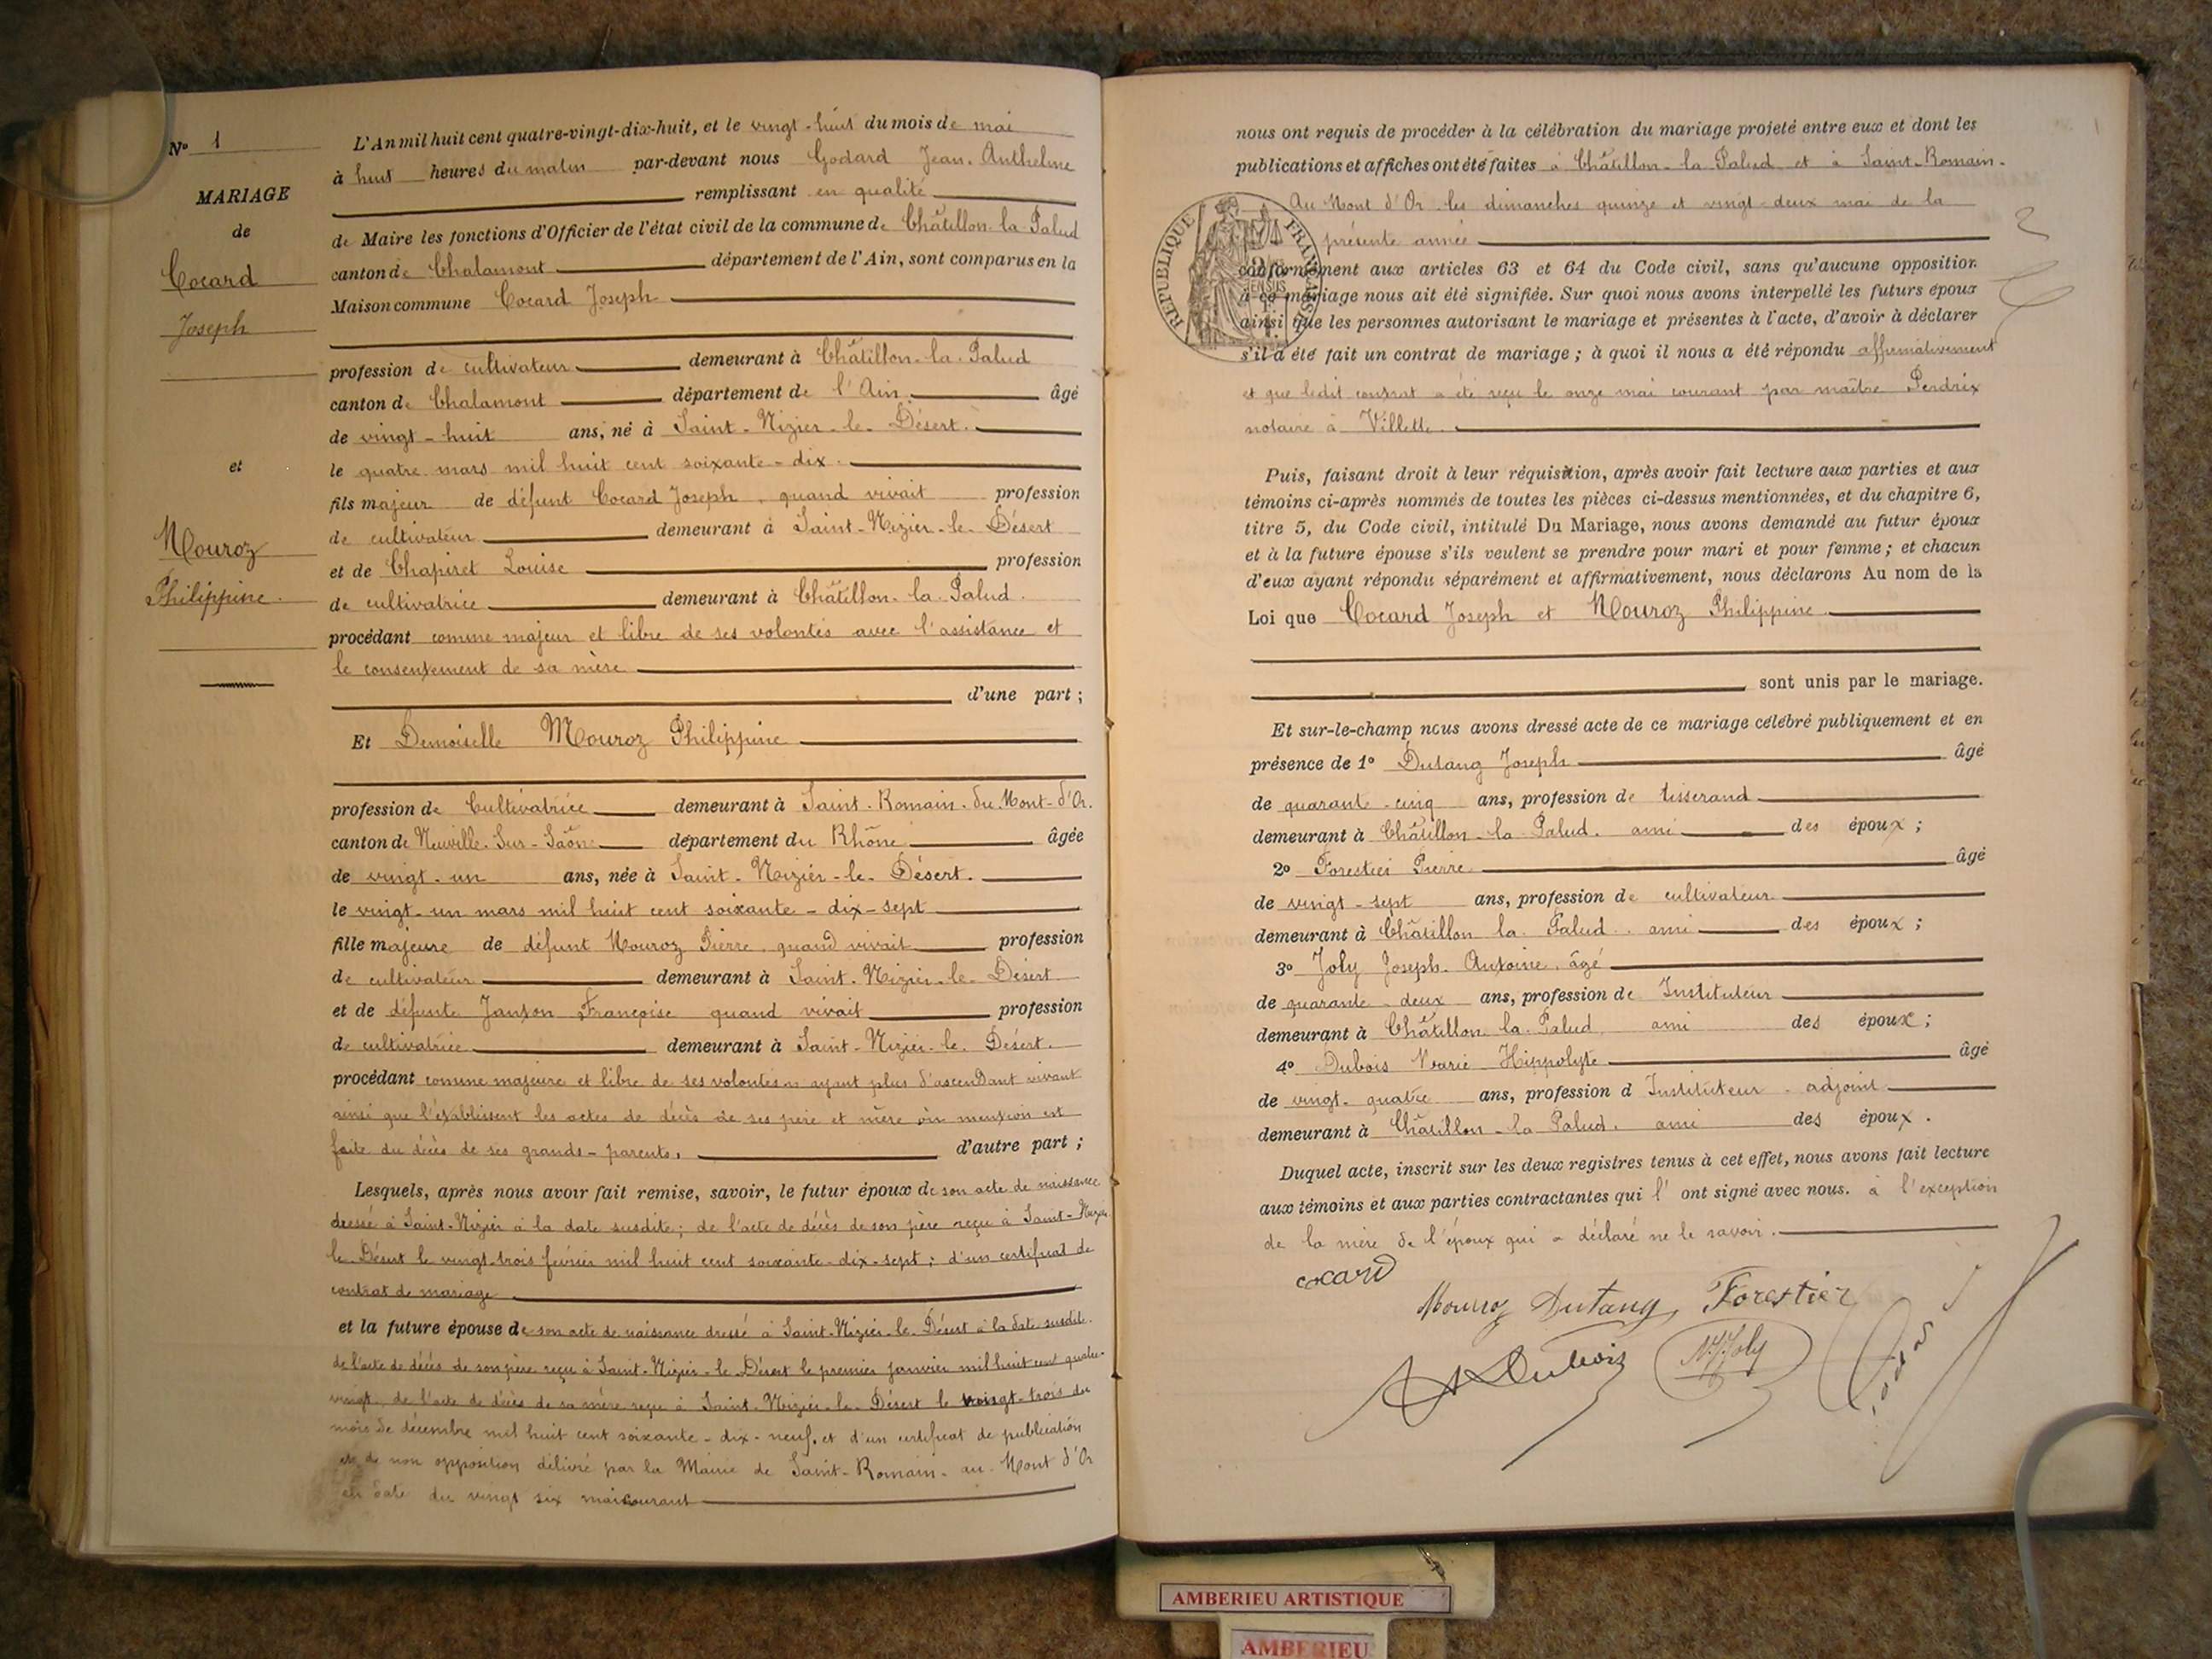 N° 1
MARIAGE
de
Cocard
Joseph
et
Mouroz
Philippine.
L'An mil huit cent quatre-vingt-dix-huit, et le vingt-huit du mois de mai
à huit heures du matin par-devant nous Godard Jean-Anthelme
remplissant en qualité
de Maire les fonctions d'Officier de l'état civil de la commune de Châtillon-la-Palud
canton de Chalamont département de l'Ain, sont comparus en la
Maison commune Cocard Joseph
profession de cultivateur demeurant à Châtillon-la-Palud
canton de Chalamont département de l'Ain âgé
de vingt-huit ans, né à Saint-Nizier-le-Désert.
le quatre mars mil huit cent soixante-dix.
fils majeur de défunt Cocard Joseph, quand vivait profession
de cultivateur demeurant à Saint-Nizier-le-Désert
et de Chapiret Louise profession
de cultivatrice demeurant à Châtillon-la-Palud.
procédant comme majeur et libre de ses volontés avec l'assistance et
le consentement de sa mère
d'une part ;
Et Demoiselle Mouroz Philippine
profession de Cultivatrice demeurant à Saint-Romain-du-Mont-d'Or.
canton de Neuville-Sur-Saône département du Rhône âgée
de vingt-un ans, née à Saint-Nizier-le-Désert.
le vingt-un mars mil huit cent soixante-dix-sept
fille majeure de défunt Mouroz Pierre, quand vivait profession
de cultivateur demeurant à Saint-Nizier-le-Désert
et de défunte Janton Françoise quand vivait profession
de cultivatrice demeurant à Saint-Nizier-le-Désert.
procédant comme majeure et libre de ses volontés n'ayant plus d'ascendant vivant
ainsi que l'établissent les actes de décès de ses père et mère où mention est
faite du décès de ses grands-parents, d'autre part ;
Lesquels, après nous avoir fait remise, savoir, le futur époux de son acte de naissance
dressé à Saint-Nizier à la date susdite ; de l'acte de décès de son père reçu à Saint-Nizier
le-Désert le vingt-trois février mil huit cent soixante-dix-sept ; d'un certificat de
contrat de mariage
et la future épouse de son acte de naissance dressé à Saint-Nizier-le-Désert à la date susdite.
de l'acte de décès de son père reçu à Saint-Nizier-le-Désert le premier janvier mil huit cent quatre-
vingt, de l'acte de décès de sa mère reçu à Saint-Nizier-le-Désert le vingt-trois du
mois de décembre mil huit cent soixante-dix-neuf, et d'un certificat de publication
et de non opposition délivré par la Mairie de Saint-Romain-au-Mont d'Or
en date du vingt six mai courant
nous ont requis de procéder à la célébration du mariage projeté entre eux et dont les
publications et affiches ont été faites à Châtillon-la-Palud et à Saint-Romain-
Au Mont d'Or les dimanches quinze et vingt-deux mai de la
présente année
RÉPUBLIQUE FRANÇAISE
conformément aux articles 63 et 64 du Code civil, sans qu'aucune opposition
à ce mariage nous ait été signifiée. Sur quoi nous avons interpellé les futurs époux
ainsi que les personnes autorisant le mariage et présentes à l'acte, d'avoir à déclarer
s'il a été fait un contrat de mariage ; à quoi il nous a été répondu affirmativement
et que ledit contrat a été reçu le onze mai courant par maître Perdrix
notaire à Villette.
Puis, faisant droit à leur réquisition, après avoir fait lecture aux parties et aux
témoins ci-après nommés de toutes les pièces ci-dessus mentionnées, et du chapitre 6,
titre 5, du Code civil, intitulé Du Mariage, nous avons demandé au futur époux
et à la future épouse s'ils veulent se prendre pour mari et pour femme ; et chacun
d'eux ayant répondu séparément et affirmativement, nous déclarons Au nom de la
Loi que Cocard Joseph et Mouroz Philippine
sont unis par le mariage.
Et sur-le-champ nous avons dressé acte de ce mariage célébré publiquement et en
présence de 1° Dutang Joseph âgé
de quarante-cinq ans, profession de tisserand
demeurant à Châtillon-la-Palud. ami des époux ;
2° Forestier Pierre âgé
de vingt-sept ans, profession de cultivateur
demeurant à Châtillon la Palud. ami des époux ;
3° Joly Joseph-Antoine, âgé
de quarante-deux ans, profession de Instituteur
demeurant à Châtillon-la-Palud, ami des époux ;
4° Dubois Marie Hippolyte âgé
de vingt-quatre ans, profession d Instituteur-adjoint
demeurant à Châtillon-la Palud. ami des époux.
Duquel acte, inscrit sur les deux registres tenus à cet effet, nous avons fait lecture
aux témoins et aux parties contractantes qui l' ont signé avec nous. à l'exception
de la mère de l'époux qui a déclaré ne le savoir.
cocard
Mouroz Dutang Forestier
Dubois Joly Godard
AMBERIEU ARTISTIQUE
AMBERIEU